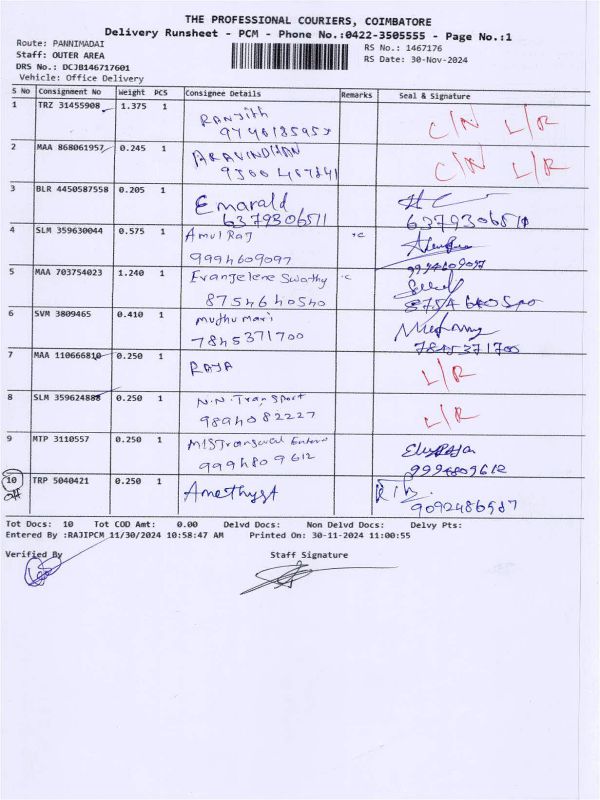 THE PROFESSIONAL COURIERS, COIMBATORE
Delivery Runsheet - PCM - Phone No.:0422-3505555 - Page No.:1
Route: PANNIMADAI
RS No.: 1467176
Staff: OUTER AREA
RS Date: 30-Nov-2024
DRS No.: DCJB146717601
Vehicle: Office Delivery
S No Consignment No Weight PCS Consignee Details Remarks Seal & Signature
1 TRZ 31455908 1.375 1 Ranjith C/N L/R
2 MAA 868061957 0.245 1 ARAVINDHAN C/N L/R
3 BLR 4450587558 0.205 1 Emarald
6379306511
4 SLM 359630044 0.575 1 Amul Raj
9994609097 9994609097
5 MAA 703754023 1.240 1 Evanjelene Swothy
8754640540
6 SVM 3809465 0.410 1 Muthu Mari
7845371700 7845371700
7 MAA 110666810 0.250 1 RAJA L/R
8 SLM 359624888 0.250 1 N.N. Transport L/R
9894082227
9 MTP 3110557 0.250 1
9994809612 9994809612
10 TRP 5040421 0.250 1 Amethyst
Tot Docs: 10 Tot COD Amt: 0.00 Delvd Docs: Non Delvd Docs: Delvy Pts:
Entered By :RAJIPCM 11/30/2024 10:58:47 AM Printed On: 30-11-2024 11:00:55
Verified By Staff Signature